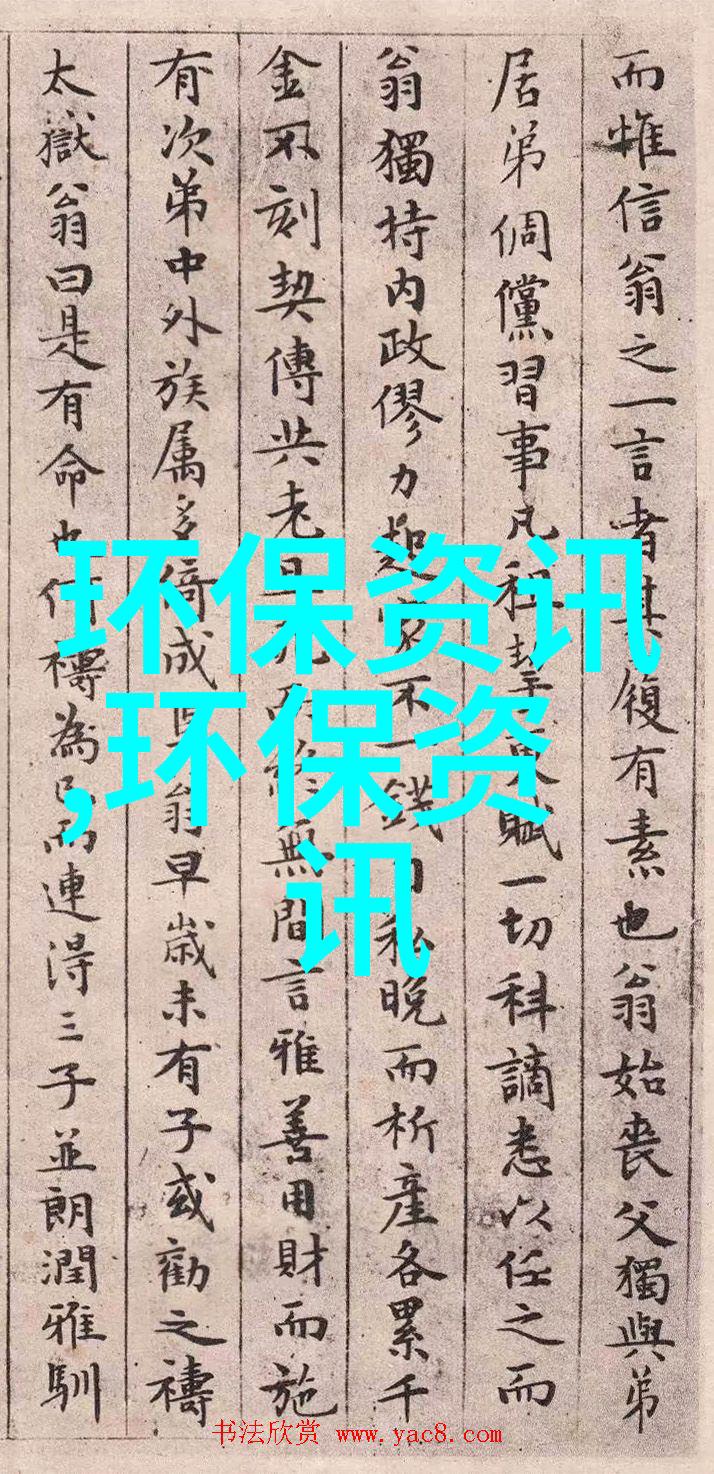 而惟信翁之一言者其履有素也翁始丧父獨與弟
居弟倜儻習事凡租挈更賦一切科謫悉以任之而
翁獨持内政僇力起家不一錢自私晚而析產各累千
金不刻契傳共老
無間言雅善用財而施
有次弟中外族属多倚成
翁早歲未有子或勸之禱
太嶽翁曰是有命也何禱為
而連得三子並朗潤雅馴
环保资讯
,环保资
讯
书法欣赏 www.yac8.com